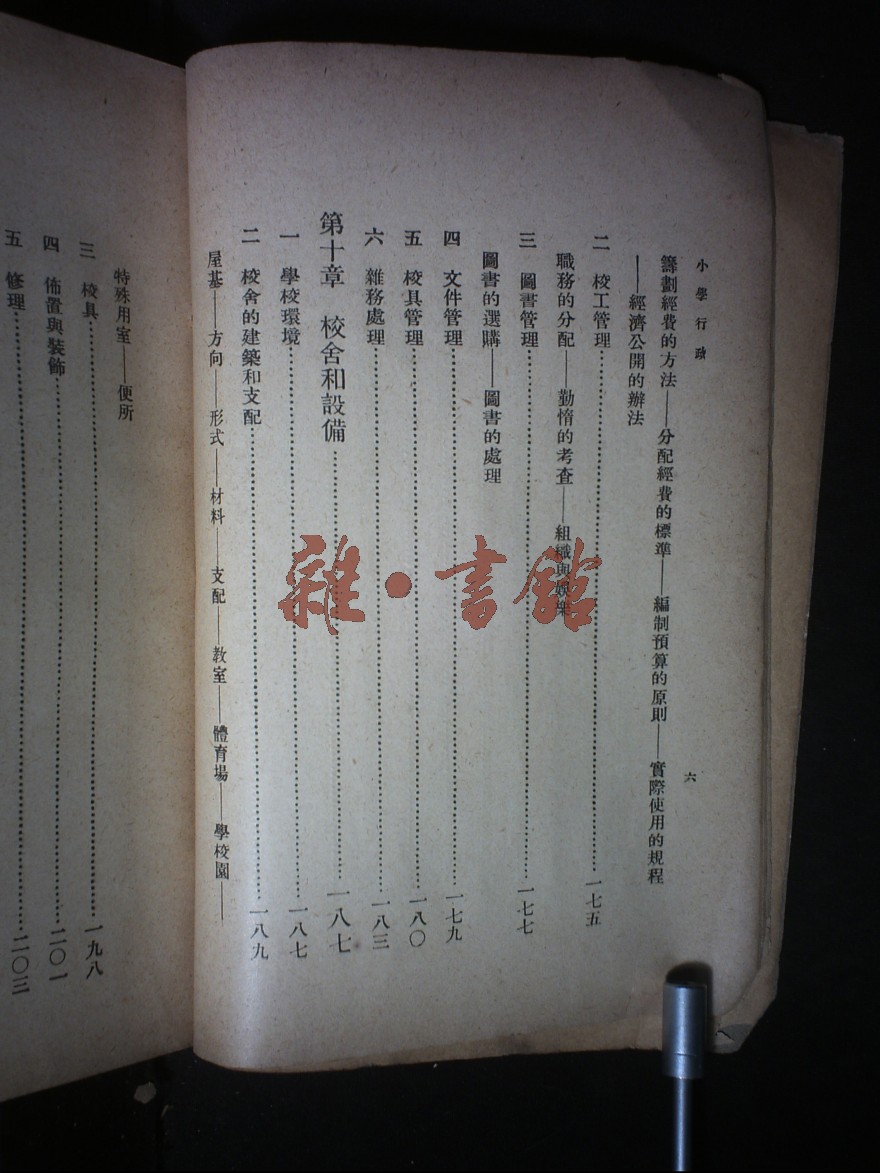 小學行政
六
籌劃經費的方法——分配經費的標準——編制預算的原則——實際使用的規程
——經濟公開的辦法
二 校工管理……一七五
職務的分配——勤惰的考查——組織與娛樂
三 圖書管理……一七七
圖書的選購——圖書的處理
四 文件管理……一七九
五 校具管理……一八〇
六 雜務處理……一八三
第十章 校舍和設備……一八七
一 學校環境……一八七
二 校舍的建築和支配……一八九
屋基——方向——形式——材料——支配——教室——體育場——學校園——
特殊用室——便所
三 校具……一九八
四 佈置與裝飾……二〇一
五 修理……二〇三
雜·書館